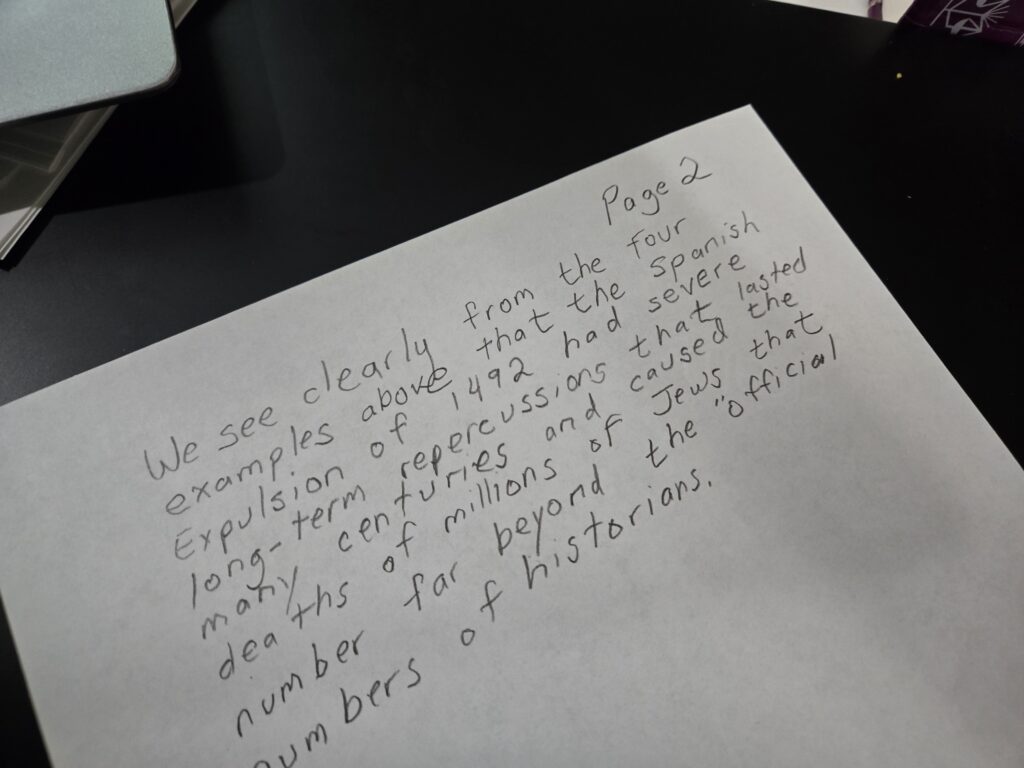 Page 2
We see clearly from the four
examples above that the Spanish
Expulsion of 1492 had severe
long-term repercussions that lasted
many centuries and caused the
deaths of millions of Jews that
number far beyond the "official
numbers of historians.